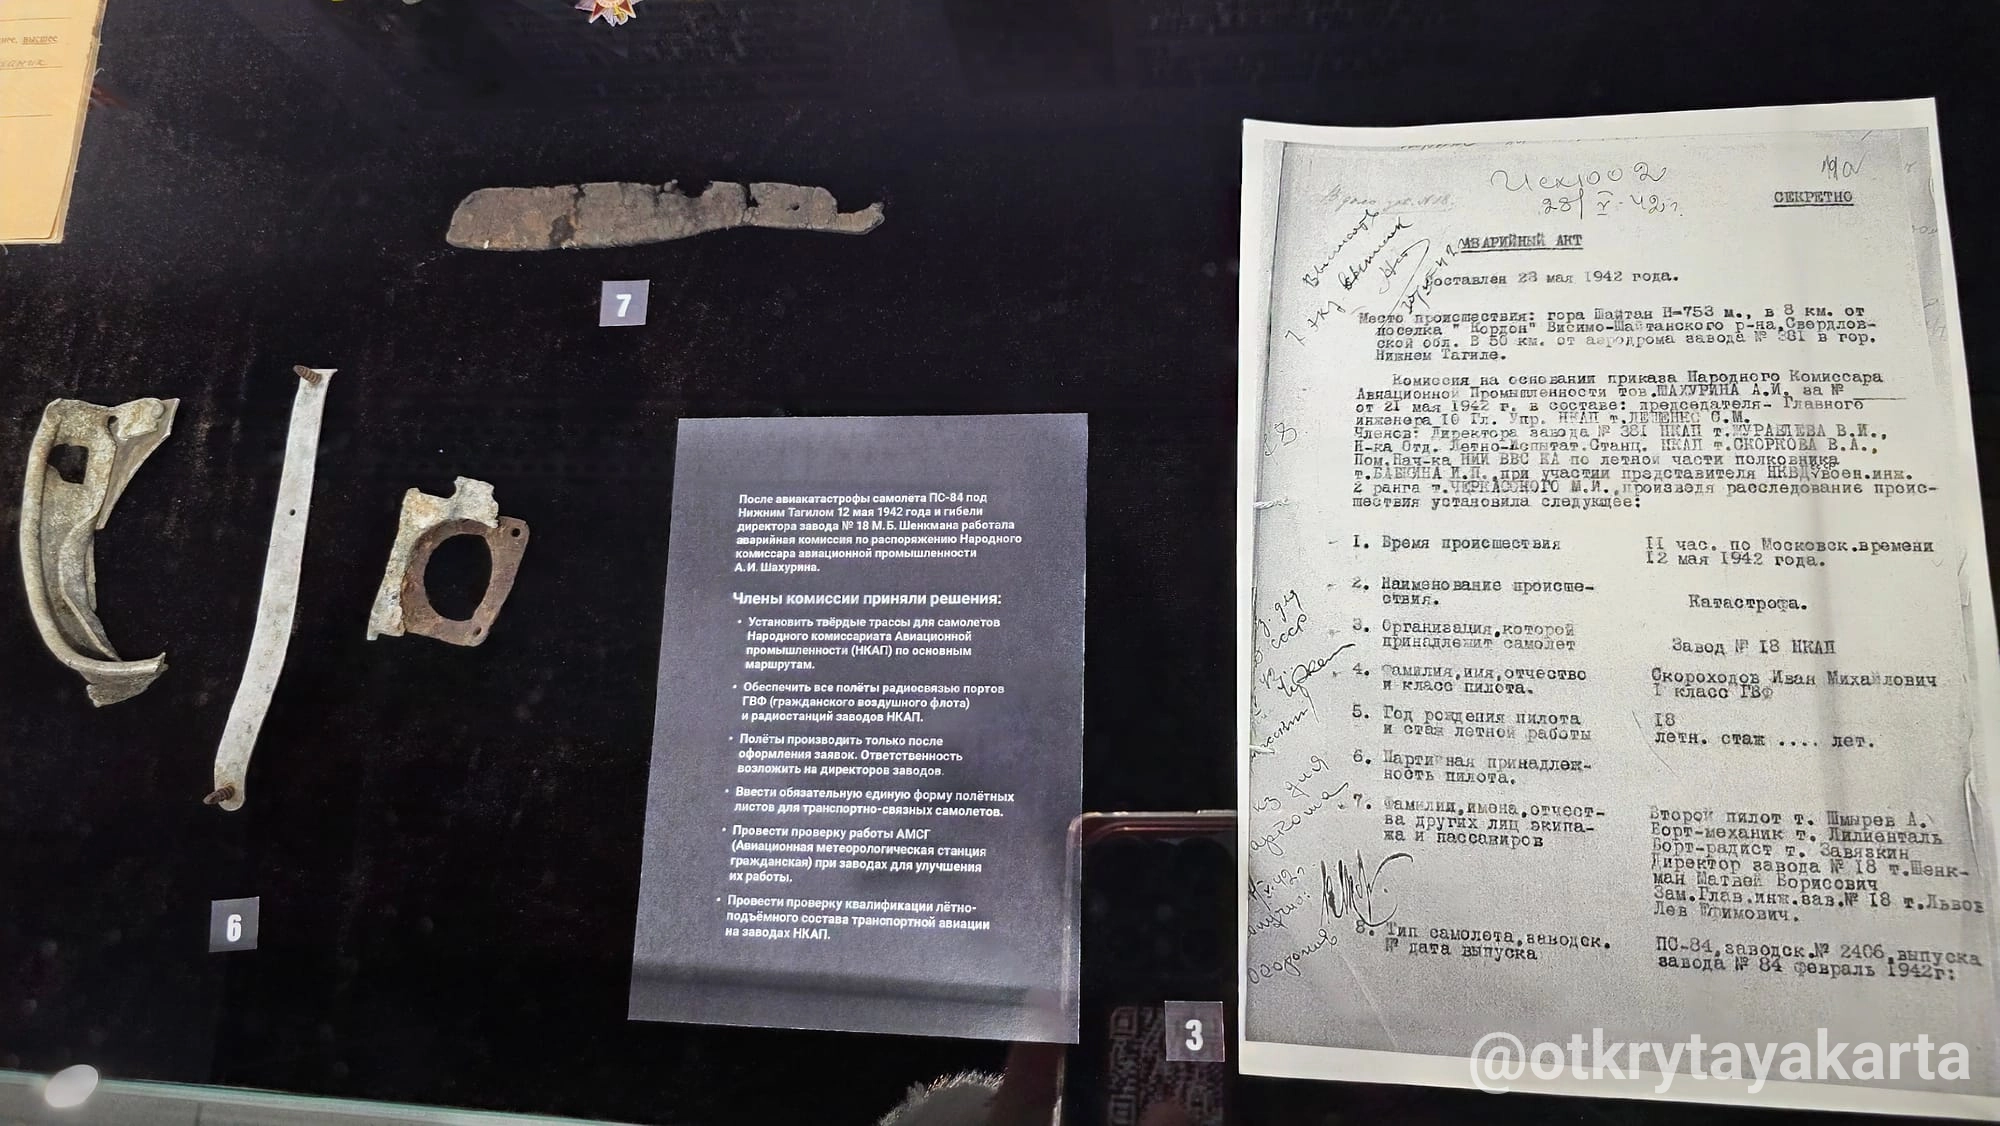 нее, высшее
7
6
3
После авиакатастрофы самолета ПС-84 под
Нижним Тагилом 12 мая 1942 года и гибели
директора завода № 18 М.Б. Шенкмана работала
аварийная комиссия по распоряжению Народного
комиссара авиационной промышленности
А.И. Шахурина.
Члены комиссии приняли решения:
• Установить твёрдые трассы для самолетов
Народного комиссариата Авиационной
промышленности (НКАП) по основным
маршрутам.
• Обеспечить все полёты радиосвязью портов
ГВФ (гражданского воздушного флота)
и радиостанций заводов НКАП.
• Полёты производить только после
оформления заявок. Ответственность
возложить на директоров заводов.
• Ввести обязательную единую форму полётных
листов для транспортно-связных самолетов.
• Провести проверку работы АМСГ
(Авиационная метеорологическая станция
гражданская) при заводах для улучшения
их работы.
• Провести проверку квалификации лётно-
подъёмного состава транспортной авиации
на заводах НКАП.
28/V-42г.
СЕКРЕТНО
АВАРИЙНЫЙ АКТ
Составлен 23 мая 1942 года.
Место происшествия: гора Шайтан Н=753 м., в 8 км. от
поселка " Кордон" Висимо-Шайтанского р-на, Свердлов-
ской обл. В 50 км. от аэродрома завода № 381 в гор.
Нижнем Тагиле.
Комиссия на основании приказа Народного Комиссара
Авиационной Промышленности тов.ШАХУРИНА А.И. за №
от 21 мая 1942 г. в составе: председателя- Главного
инженера 10 Гл. Упр. НКАП т.ЛЕЩЕНКО С.М.
Членов: Директора завода № 381 НКАП т.ЖУРАВЛЕВА В.И.,
Н-ка Отд. Летно-Испытат.Станц. НКАП т.СКОРКОВА В.А.,
Пом.Нач-ка НИИ ВВС КА по летной части полковника
т.БАБКИНА И.П., при участии представителя НКВД воен.инж.
2 ранга т.ЧЕРКАСОНОГО М.И., производя расследование проис-
шествия установила следующее:
1. Время происшествия 11 час. по Московск.времени
12 мая 1942 года.
2. Наименование происше-
ствия. Катастрофа.
3. Организация, которой
принадлежит самолет Завод № 18 НКАП
4. Фамилия, имя, отчество Скороходов Иван Михайлович
и класс пилота. 1 класс ГВФ
5. Год рождения пилота 18
и стаж летной работы летн. стаж .... лет.
6. Партийная принадлеж-
ность пилота.
7. Фамилии, имена, отчест- Второй пилот т. Шмырев А.
ва других лиц экипа- Борт-механик т. Лилиенталь
жа и пассажиров Борт-радист т. Завязкин
Директор завода № 18 т.Шенк-
ман Матвей Борисович
Зам.Глав.инж.зав.№ 18 т.Львов
Лев Ефимович.
8. Тип самолета, заводск. ПС-84, заводск.№ 2406, выпуска
№ дата выпуска завода № 84 февраль 1942г:
@otkrytayakarta